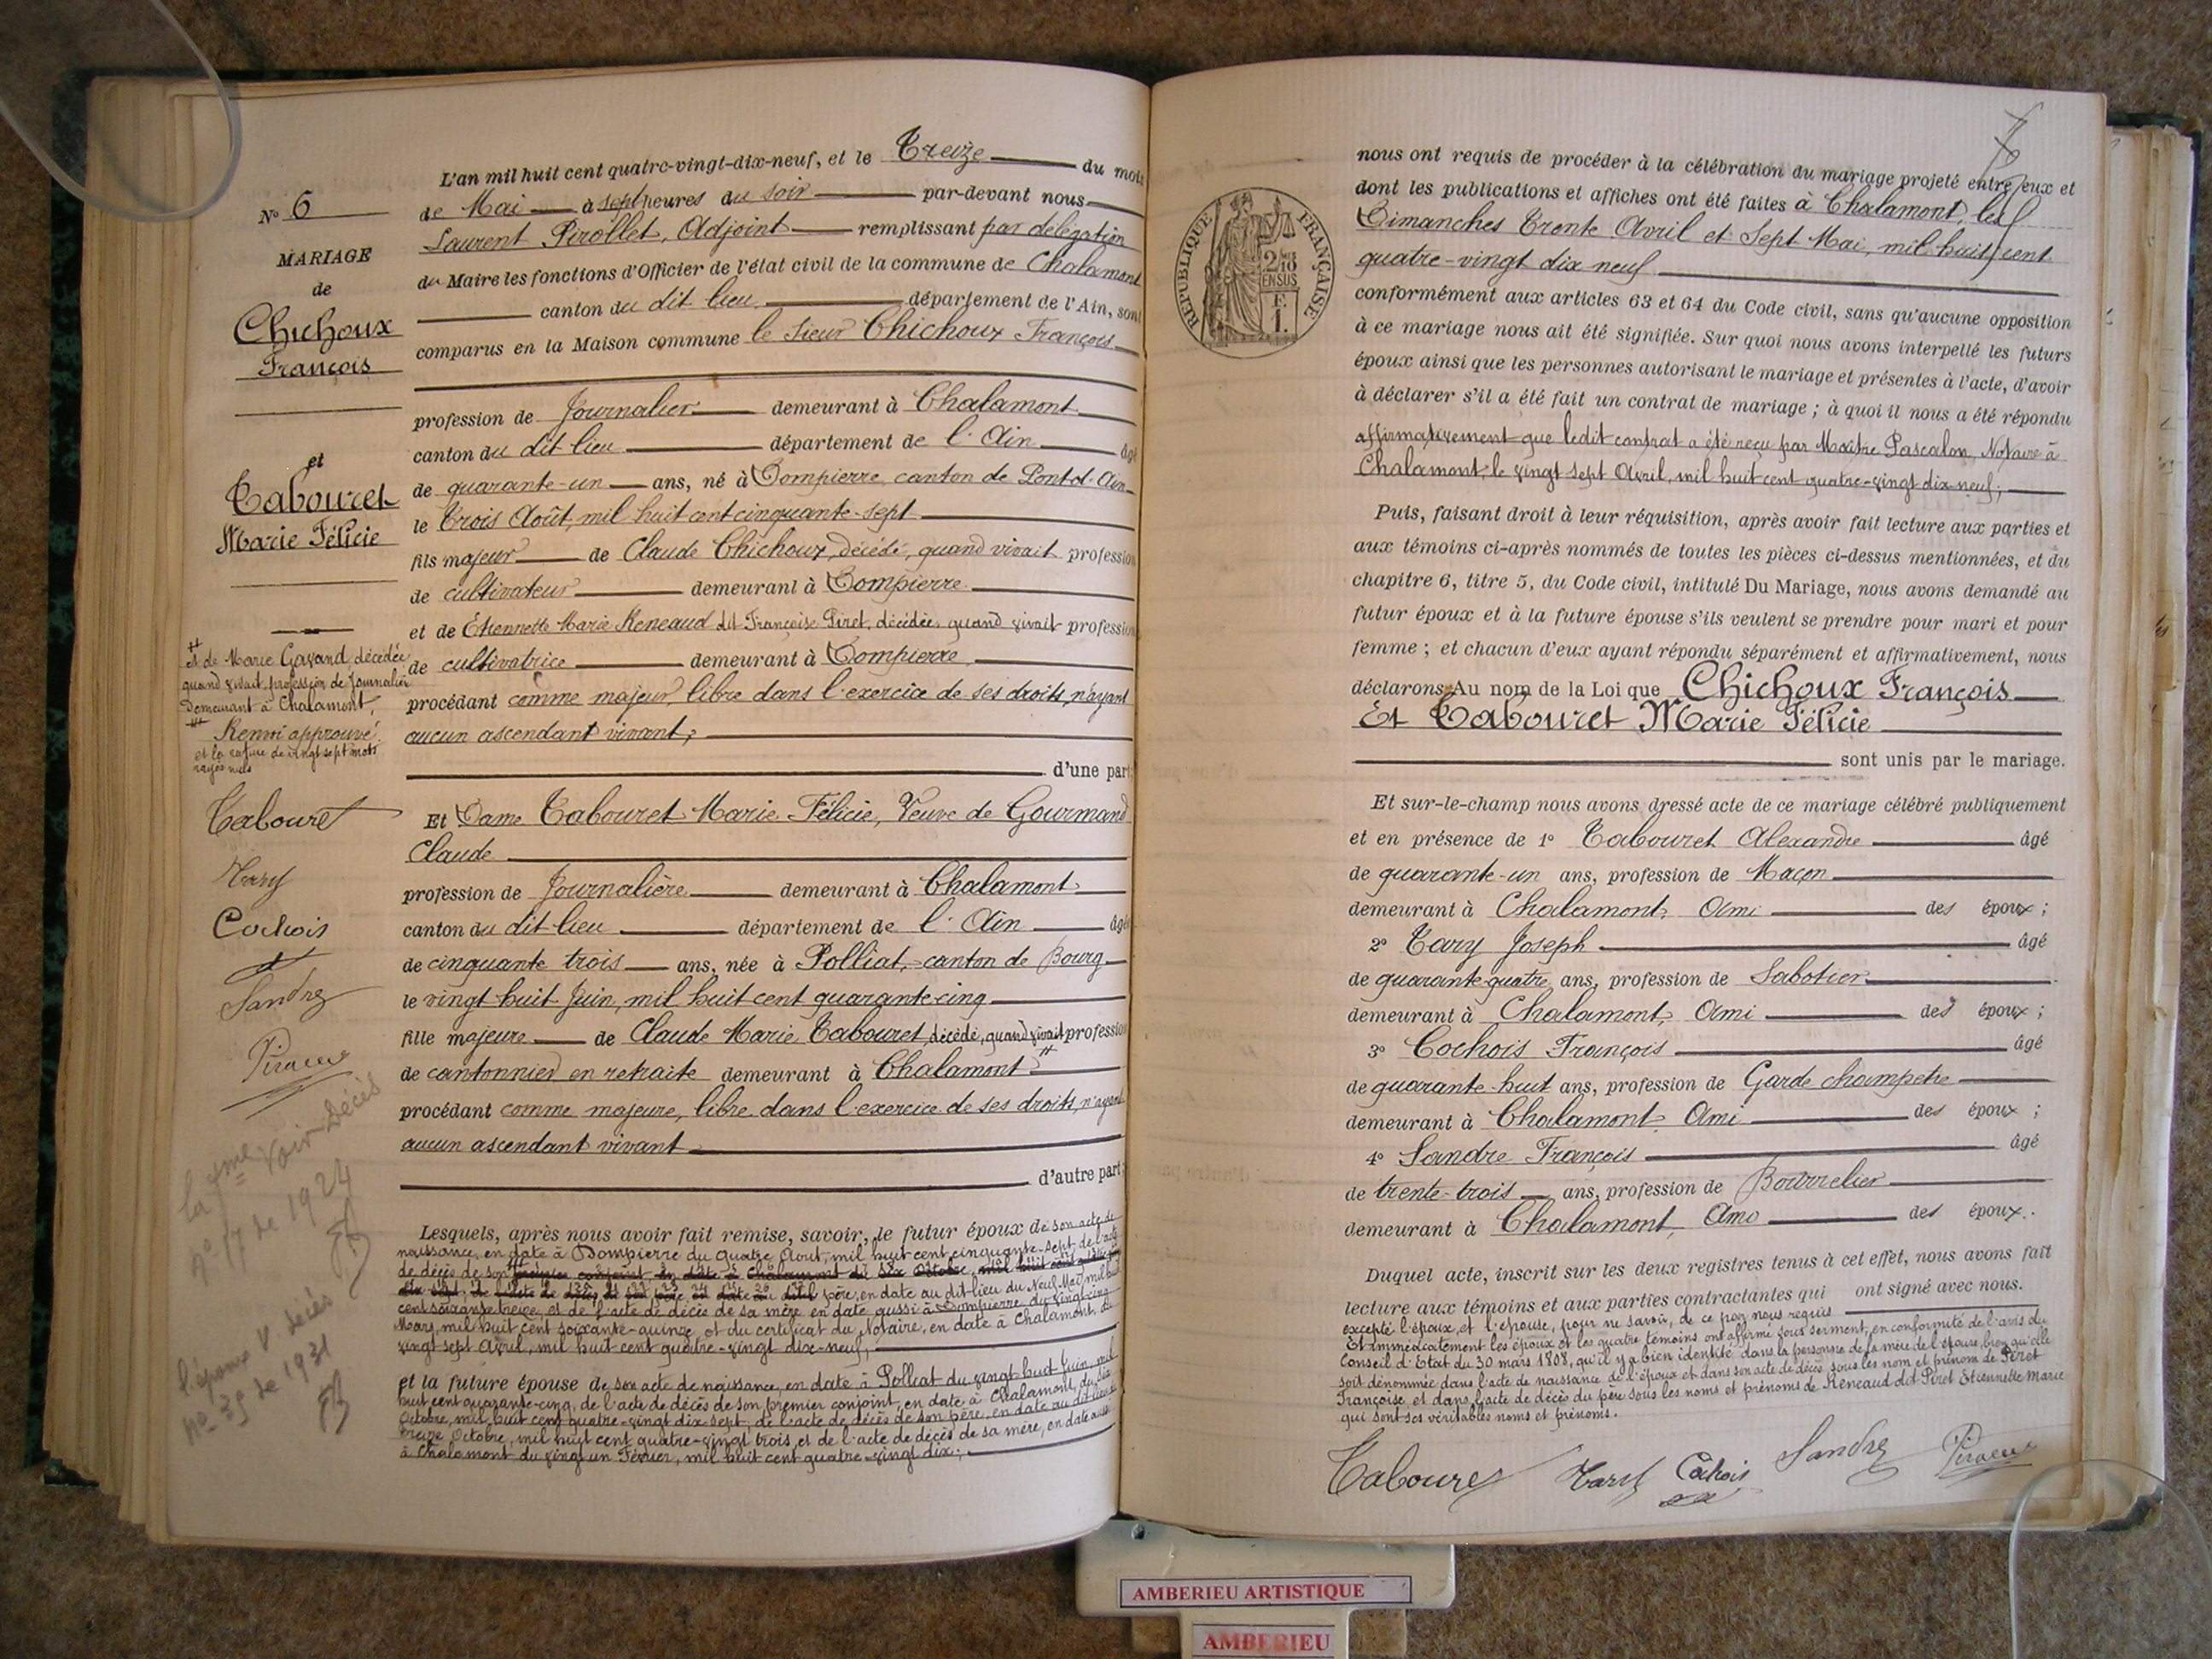 N° 6
MARIAGE
de
Chichoux
François
et
Tabouret
Marie Félicie
et de Marie Gavand, décédée
quand vivait profession de Journalière
Demeurant à Chalamont,
Renvoi approuvé
et la rature de vingt sept mots
rayés nuls
Tabouret
Tary
Cochois
Sandre
la fme voir décès
n° 17 de 1924
l'époux V décès
n° 39 de 1931
L'an mil huit cent quatre-vingt-dix-neuf, et le Treize du mois
de Mai à sept heures du soir par-devant nous
Laurent Pirollet, Adjoint remplissant par délégation
du Maire les fonctions d'Officier de l'état civil de la commune de Chalamont
canton du dit lieu département de l'Ain, sont
comparus en la Maison commune le sieur Chichoux François
profession de Journalier demeurant à Chalamont
canton du dit lieu département de l'Ain âgé
de quarante-un ans, né à Dompierre canton de Pont-d'Ain
le trois Août, mil huit cent cinquante-sept
fils majeur de Claude Chichoux, décédé, quand vivait profession
de cultivateur demeurant à Dompierre
et de Etiennette Marie Reneaud dit Françoise Piret, décédée, quand vivait profession
de cultivatrice demeurant à Dompierre
procédant comme majeur, libre dans l'exercice de ses droits, n'ayant
aucun ascendant vivant,
d'une part;
Et Dame Tabouret Marie Félicie, Veuve de Gourmand
Claude
profession de Journalière demeurant à Chalamont
canton du dit lieu département de l'Ain âgée
de cinquante trois ans, née à Polliat, canton de Bourg
le vingt huit Juin, mil huit cent quarante-cinq
fille majeure de Claude Marie Tabouret, décédé, quand vivait profession
de cantonnier en retraite demeurant à Chalamont
procédant comme majeure, libre dans l'exercice de ses droits, n'ayant
aucun ascendant vivant
d'autre part;
Lesquels, après nous avoir fait remise, savoir, le futur époux de son acte de
naissance, en date à Dompierre du quatre Août, mil huit cent cinquante-sept, de l'acte
de décès de son
père, en date au dit lieu du Neuf Mai, mil huit
cent soixante treize, et de l'acte de décès de sa mère en date aussi à Dompierre du vingt cinq
Mars, mil huit cent soixante-quinze, et du certificat du Notaire, en date à Chalamont, du
vingt sept Avril, mil huit cent quatre-vingt dix-neuf,
et la future épouse de son acte de naissance, en date à Polliat du vingt huit Juin, mil
huit cent quarante-cinq, de l'acte de décès de son premier conjoint, en date à Chalamont, du six
Octobre, mil huit cent quatre-vingt dix sept, de l'acte de décès de son père, en date au dit lieu du
treize Octobre, mil huit cent quatre-vingt trois, et de l'acte de décès de sa mère, en date aussi
à Chalamont du vingt un Février, mil huit cent quatre-vingt dix;
RÉPUBLIQUE FRANÇAISE
2/10
EN SUS
1 F.
nous ont requis de procéder à la célébration du mariage projeté entre eux et
dont les publications et affiches ont été faites à Chalamont, les
Dimanches trente Avril et Sept Mai, mil huit cent
quatre-vingt dix neuf
conformément aux articles 63 et 64 du Code civil, sans qu'aucune opposition
à ce mariage nous ait été signifiée. Sur quoi nous avons interpellé les futurs
époux ainsi que les personnes autorisant le mariage et présentes à l'acte, d'avoir
à déclarer s'il a été fait un contrat de mariage; à quoi il nous a été répondu
affirmativement que ledit contrat a été reçu par Maître Pascalon, Notaire à
Chalamont, le vingt sept Avril, mil huit cent quatre-vingt dix-neuf;
Puis, faisant droit à leur réquisition, après avoir fait lecture aux parties et
aux témoins ci-après nommés de toutes les pièces ci-dessus mentionnées, et du
chapitre 6, titre 5, du Code civil, intitulé Du Mariage, nous avons demandé au
futur époux et à la future épouse s'ils veulent se prendre pour mari et pour
femme; et chacun d'eux ayant répondu séparément et affirmativement, nous
déclarons Au nom de la Loi que Chichoux François
Et Tabouret Marie Félicie
sont unis par le mariage.
Et sur-le-champ nous avons dressé acte de ce mariage célébré publiquement
et en présence de 1° Tabouret Alexandre âgé
de quarante-un ans, profession de Maçon
demeurant à Chalamont, Ami des époux;
2° Tary Joseph âgé
de quarante-quatre ans, profession de Sabotier
demeurant à Chalamont, Ami des époux;
3° Cochois François âgé
de quarante-huit ans, profession de Garde champetre
demeurant à Chalamont Ami des époux;
4° Sandre François âgé
de trente-trois ans, profession de Bourrelier
demeurant à Chalamont, Ami des époux.
Duquel acte, inscrit sur les deux registres tenus à cet effet, nous avons fait
lecture aux témoins et aux parties contractantes qui ont signé avec nous.
excepté l'époux, et l'épouse, pour ne savoir, de ce par nous requis
Et immédiatement les époux et les quatre témoins ont affirmé sous serment, en conformité de l'avis du
Conseil d'Etat du 30 mars 1808, qu'il y a bien identité dans la personne de la mère de l'époux, bien qu'elle
soit dénommée dans l'acte de naissance de l'époux et dans son acte de décès sous les nom et prénom de Péret
Françoise et dans l'acte de décès du père sous les noms et prénoms de Reneaud dit Piret Etiennette Marie
qui sont ses véritables noms et prénoms.
Tabouret Tary Cochois Sandre
AMBERIEU ARTISTIQUE
AMBERIEU